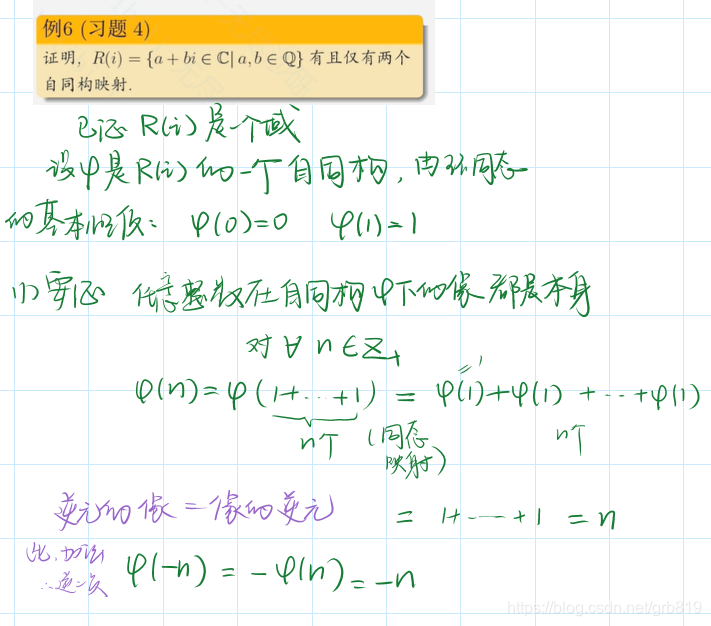 例6 (习题 4)
证明, R(i) = {a + bi ∈ ℂ| a, b ∈ ℚ} 有且仅有两个
自同构映射.
已证 R(i) 是一个域
设φ是R(i)的一个自同构, 由环同态
的基本性质: φ(0)=0 φ(1)=1
(1) 要证 任意整数在自同构φ下的像都是本身
对 ∀ n ∈ Z₊
φ(n) = φ(1+⋯+1) = φ(1)+φ(1) +⋯+φ(1)
n个 (同态映射) n个
逆元的像 = 像的逆元 = 1+⋯+1 = n
此, 加法
φ(-n) = -φ(n) = -n
https://blog.csdn.net/grb819